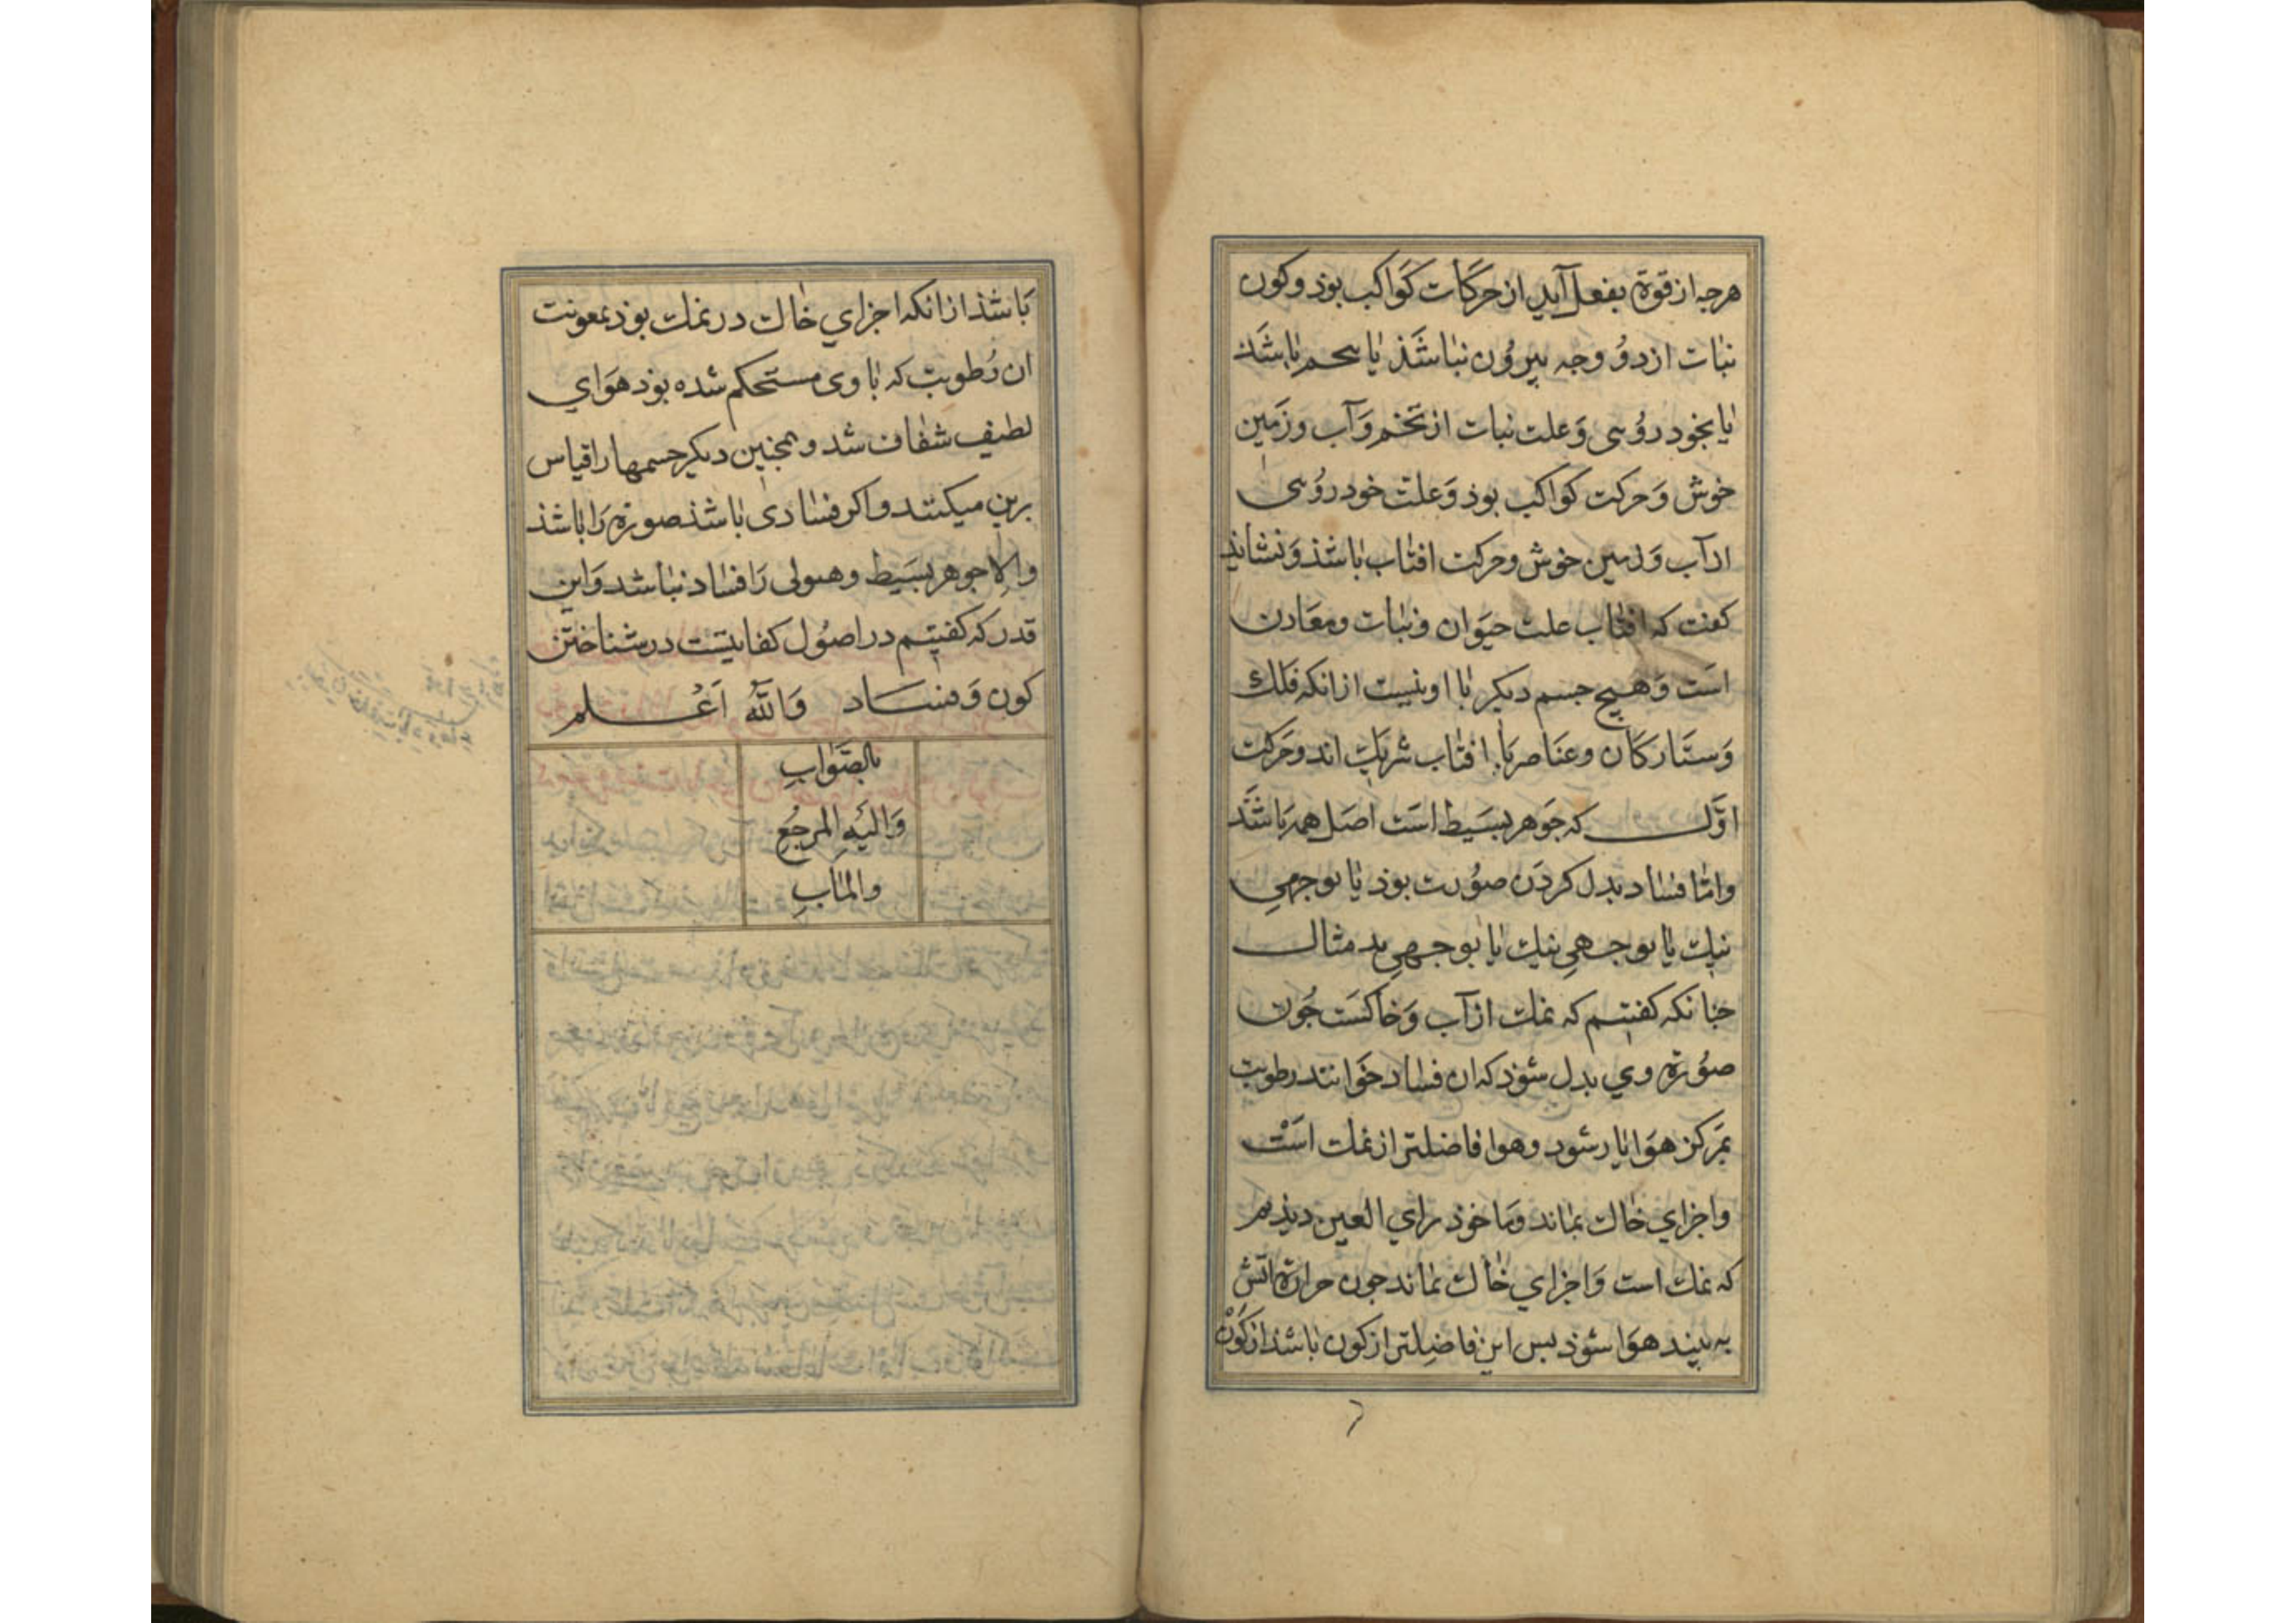 هرجه از قوة بفعل آید از حرکات کواکب بوذ و کون
نبات از دو وجه بیرون نباشذ یا بتخم باشذ
یا بخود روی و علت نبات از تخم و آب و زمین
خوش و حرکت کواکب بوذ و علت خود روی
از آب و زمین خوش و حرکت افتاب باشذ و نشاید
کفت که افتاب علت حیوان و نبات و معادن
است و هیچ جسم دیکر با او نیست از انکه فلک
و ستارکان و عناصر با افتاب شریک اند و حرکت
اول که جوهر بسیط است اصل همه باشذ
و اما فساد بدل کردن صورت بوذ یا بوجهی
نیک یا بوجهی نیک یا بوجهی بد مثال
جنانکه کفتیم که نمک از آب و خاکست جون
صورة وی بدل شوذ که ان فساد خوانند رطوبت
بمرکز هوا یار شود و هوا فاضلتر از نمک است
و اجزای خاک بماند و ما خوذ برای العین دیذیم
که نمک است و اجزای خاک نماند جون حرارة اتش
به بیند هوا شوذ بس این فاضلتر از کون باشذ از کون
باشذ از انکه اجزای خاک در نمک بوذ بمعونت
ان رطوبت که با وی مستحکم شده بوذ هوای
لطیف شفاف شد و همجنین دیکر جسمها را قیاس
برین میکنند و اکر فسادی باشذ صورة را باشذ
والا جوهر بسیط و هیولی را فساد نباشد و این
قدر که کفتیم در اصول کفایتست در شناختن
کون و فساد والله اعلم
بالصواب
والیه المرجع
والمآب